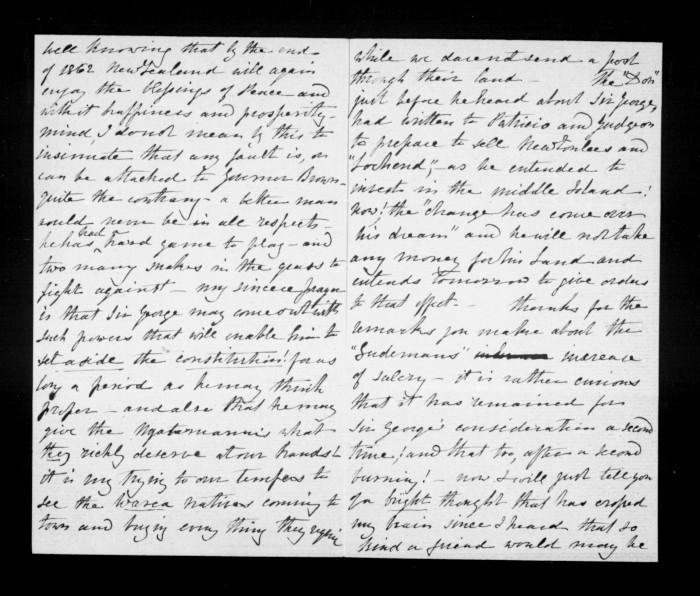 well knowing that by the end
of 1862 New Zealand will again
enjoy the blessings of Peace and
with it happiness and prosperity -
mind, I do not mean by this to
insinuate that any fault is, or
can be attached to Governor Browne
quite the contrary - a better man
could never be in all respects -
he has had a hard game to play - and
two many snakes in the grass to
fight against - my sincere prayer
is that Sir George may come out with
such powers that will enable him to
set aside the constitution! for as
long a period as he may think
proper - and also that he may
give the Ngatiruanui's what
they richly deserve at our hands!
it is very trying to our tempers to
see the Warea natives coming to
town and buying every thing they require
while we daren't send a post
through their land - The "Don"
just before he heard about Sir George,
had written to Patricio and Gudgeon
to prepare to sell New Tonlees and
"Lochend", - as he intended to
invest in the middle Island!
now! the "change has come over
his dream" and he will not take
any money for his Land and
intends tomorrow to give orders
to that effect - thanks for the
remarks you make about the
"Gudemans" increase
of salary - it is rather curious
that it has remained for
Sir George's consideration a second
time! and that too, after a second
burning! - now I will just tell you
of a bright thought that has crossed
my brain since I heard that so
kind a friend would may be